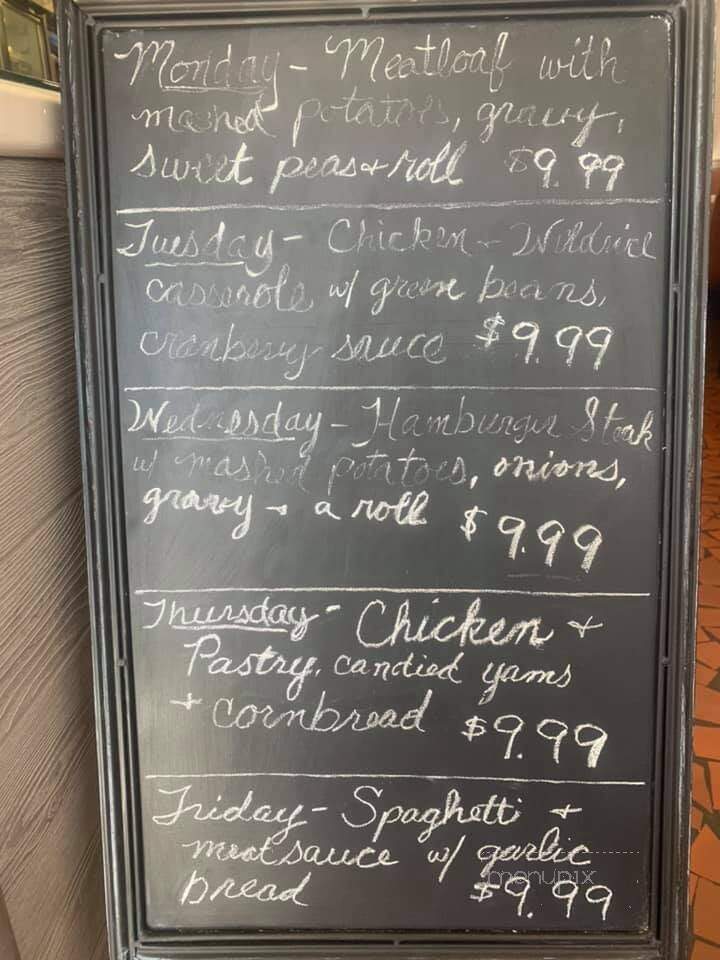 Monday - Meatloaf with
mashed potatoes, gravy,
sweet peas + roll $9.99
Tuesday - Chicken + Wildrice
casserole w/ green beans,
cranberry sauce $9.99
Wednesday - Hamburger Steak
w/ mashed potatoes, onions,
gravy + a roll $9.99
Thursday - Chicken +
Pastry, candied yams
+ cornbread $9.99
Friday - Spaghetti +
meat sauce w/ garlic
bread $9.99
menupix